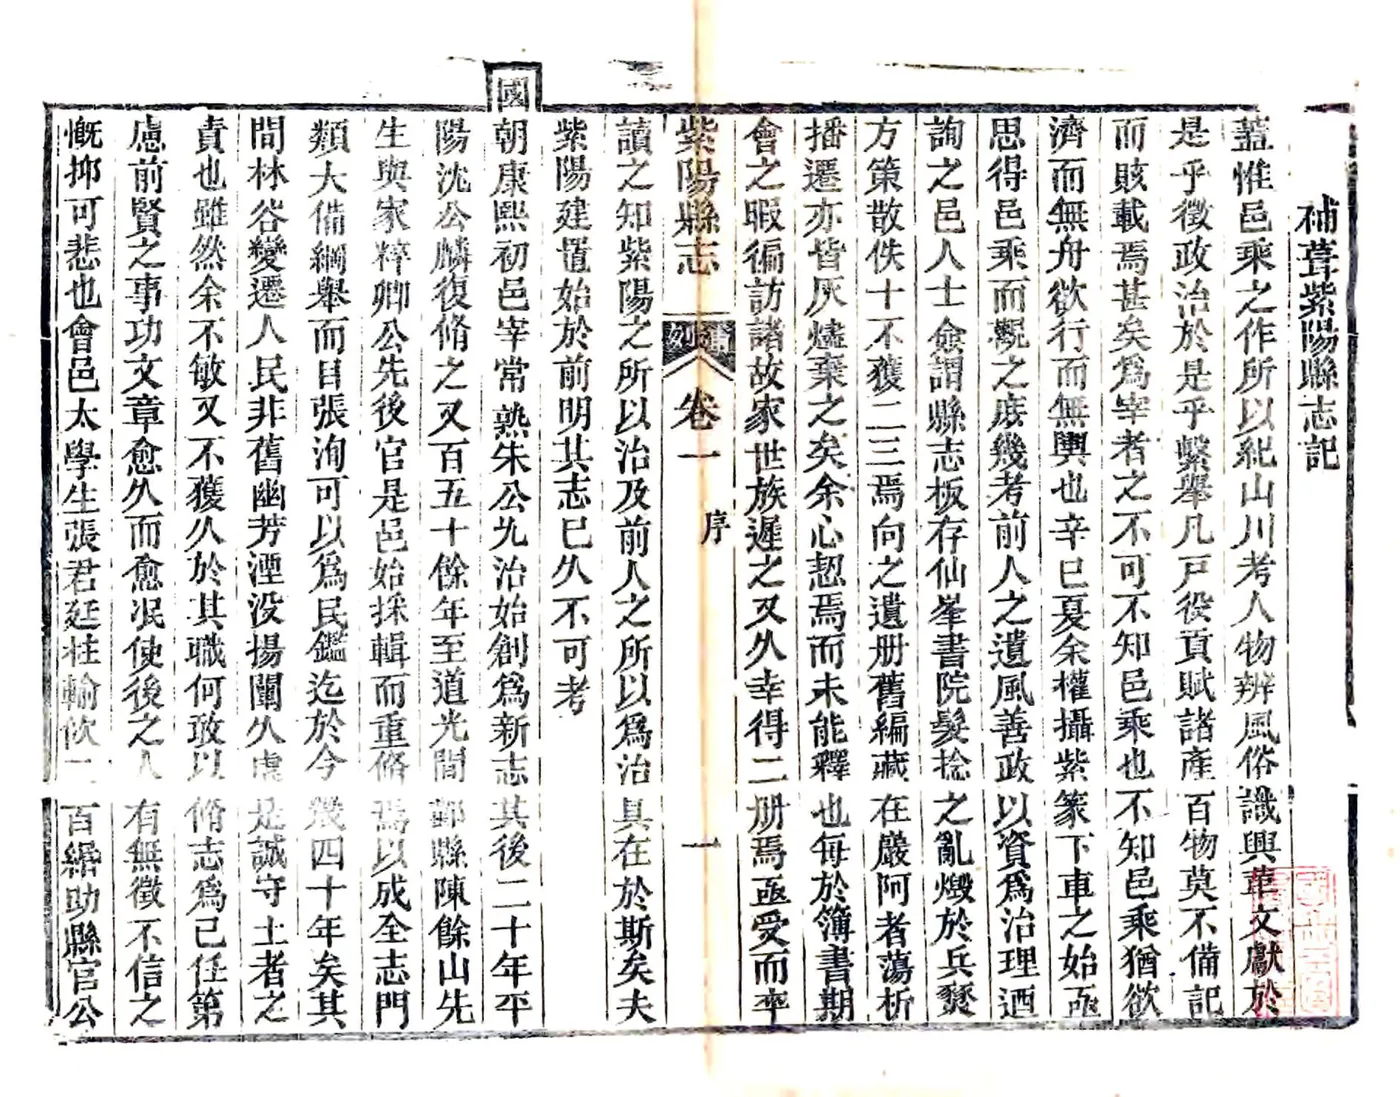 補葺紫陽縣志記
蓋惟邑乘之作所以紀山川考人物辨風俗識興革文獻於
是乎徵政治於是乎繫舉凡戸役貢賦諸產百物莫不備記
而賅載焉甚矣爲宰者之不可不知邑乘也不知邑乘猶欲
濟而無舟欲行而無輿也辛巳夏余權攝紫篆下車之始亟
思得邑乘而觀之庶幾考前人之遺風善政以資爲治理迺
詢之邑人士僉謂縣志板存仙峯書院髮捻之亂燬於兵燹
方策散佚十不獲二三焉向之遺册舊編藏在嚴阿者蕩析
播遷亦皆灰燼棄之矣余心怒焉而未能釋也每於簿書期
會之暇徧訪諸故家世族遲之又久幸得二册焉亟受而卒
紫陽縣志
卷一
序
一
讀之知紫陽之所以治及前人之所以爲治具在於斯矣夫
紫陽建置始於前明其志已久不可考
國
朝康熙初邑宰常熟朱公九治始創爲新志其後二十年平
陽沈公麟復脩之又百五十餘年至道光間鄞縣陳餘山先
生與家粹卿公先後官是邑始採輯而重脩焉以成全志門
類大備綱舉而目張洵可以爲民鑑迄於今幾四十年矣其
間林谷變遷人民非舊幽芳湮没揚闡久虛是誠守土者之
責也雖然余不敏又不獲久於其職何敢以脩志爲己任第
慮前賢之事功文章愈久而愈泯使後之人有無徵不信之
慨抑可悲也會邑太學生張君廷柱輸饮二百緡助縣官公